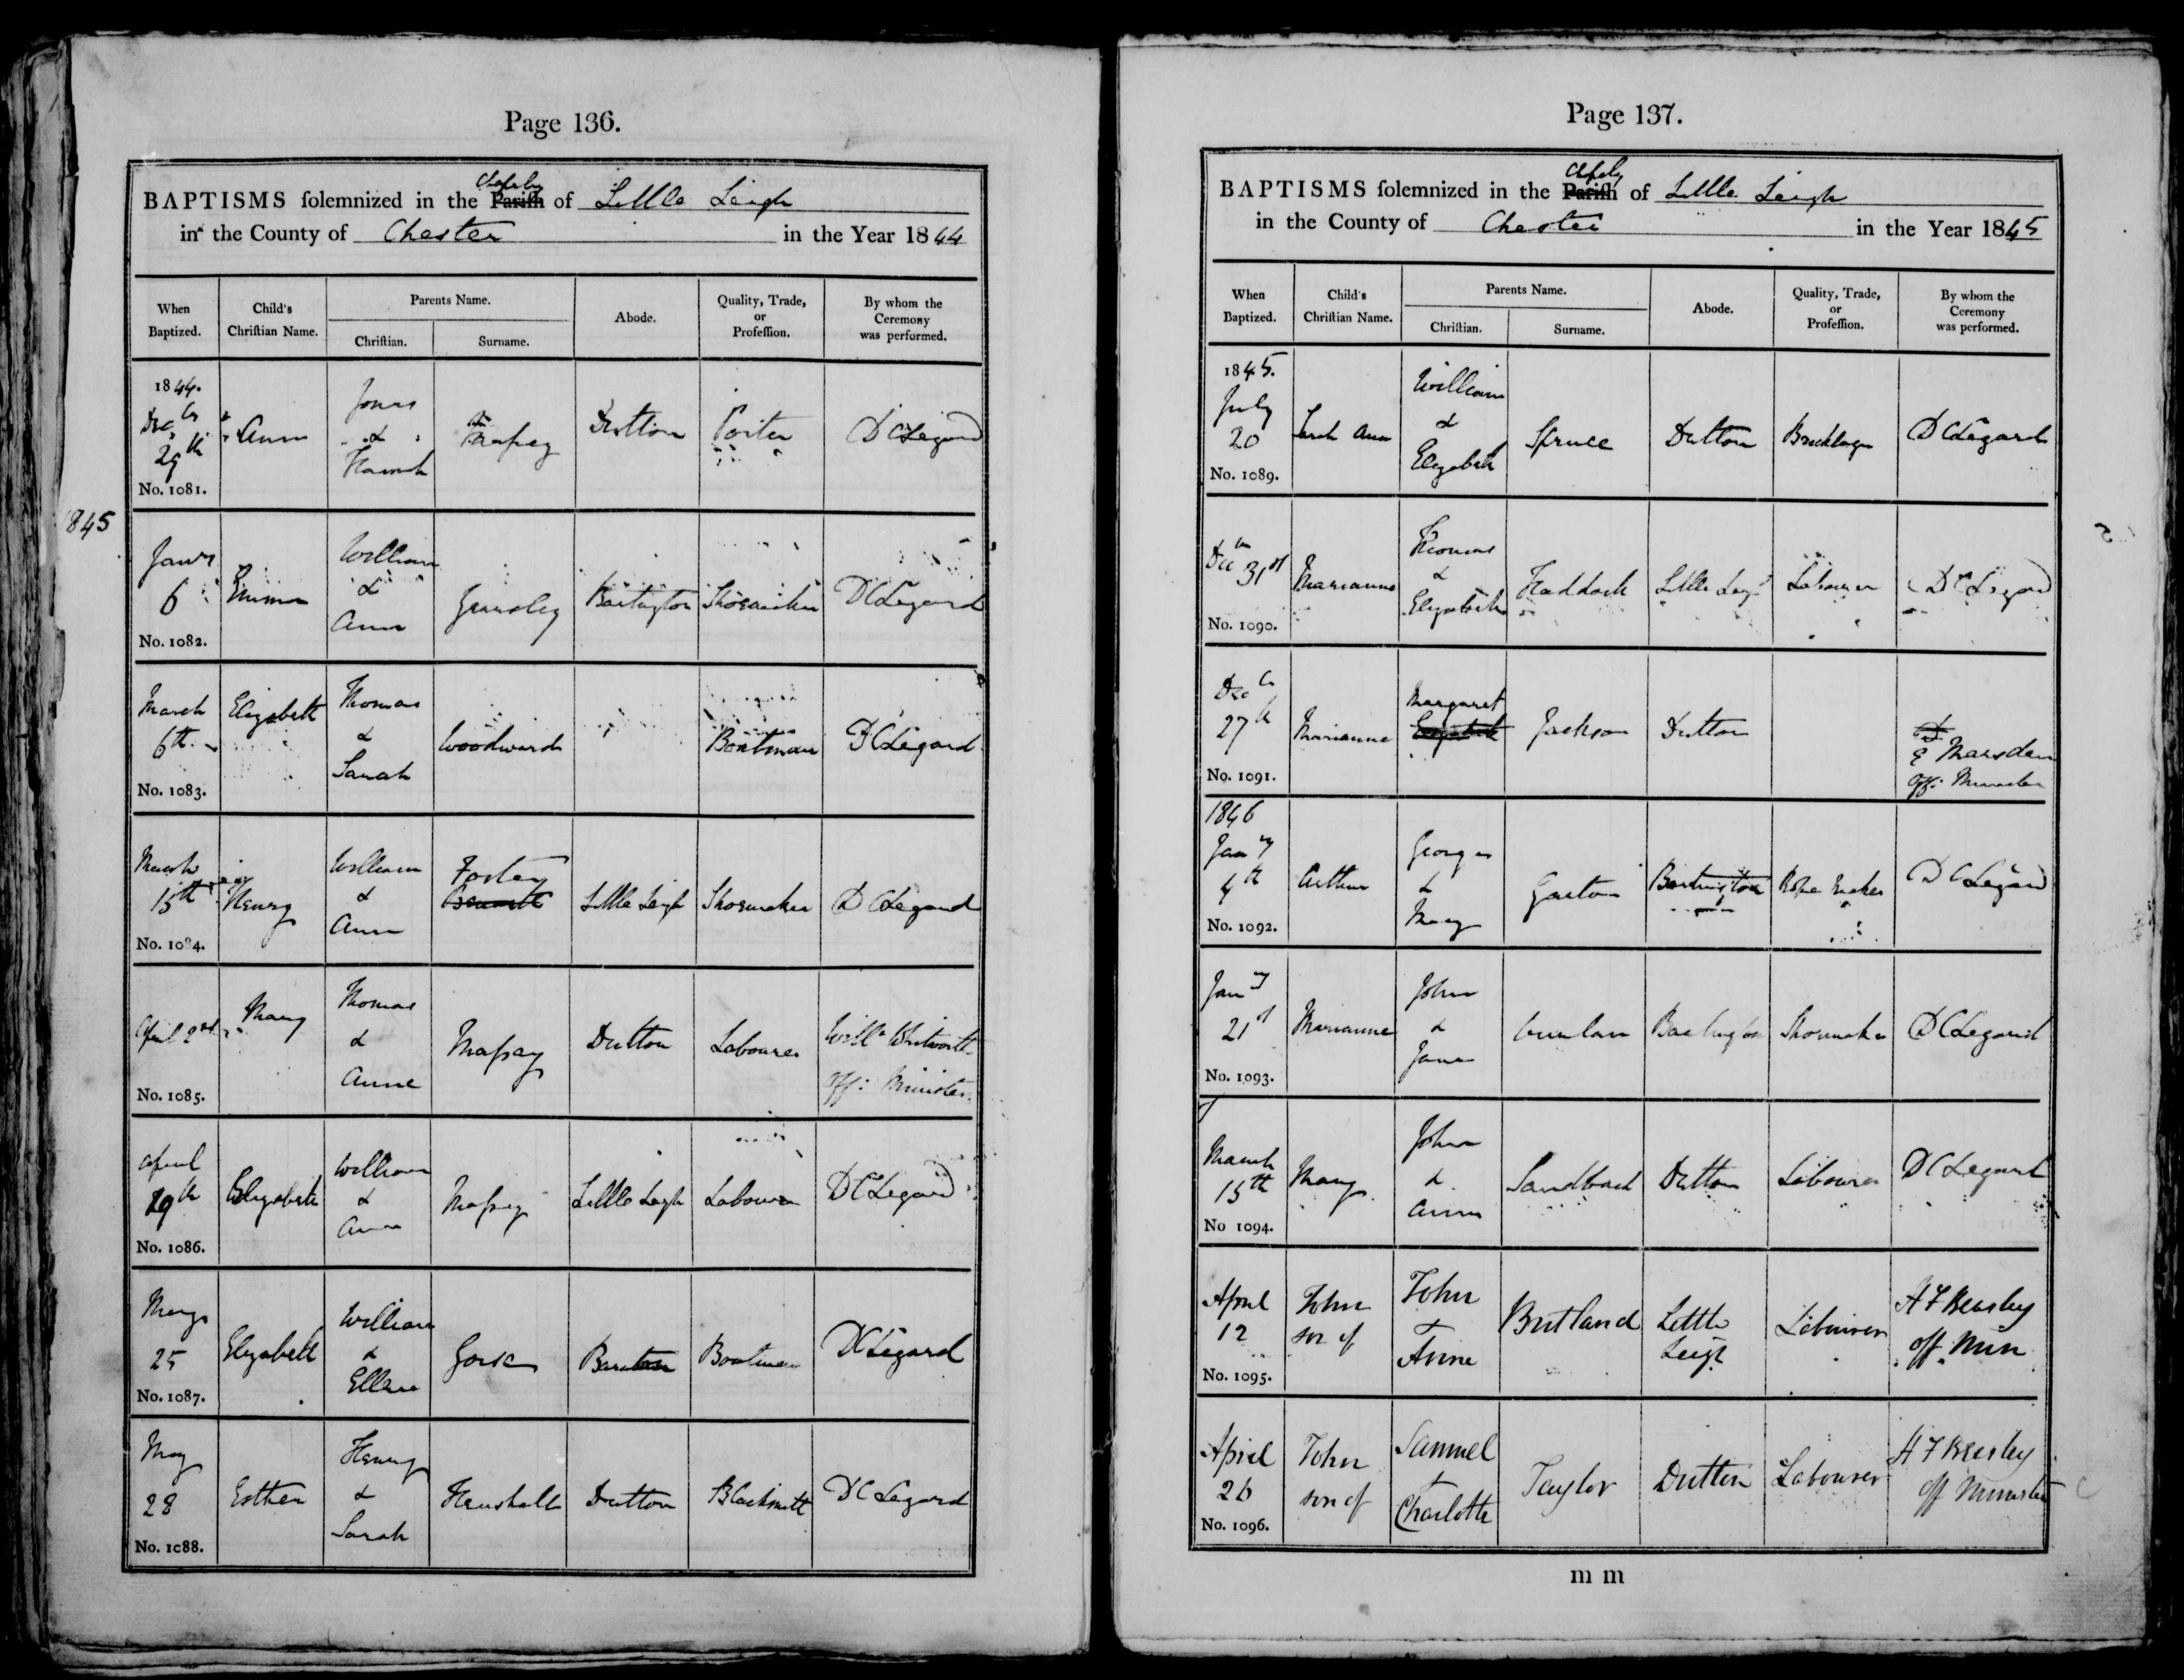 Page 136.
BAPTISMS ſolemnized in the Chapelry Pariſh of Little Leigh
in the County of Chester in the Year 1844
When Baptized.
Child's Chriſtian Name.
Parents Name.
Chriſtian.
Surname.
Abode.
Quality, Trade, or Profeſſion.
By whom the Ceremony was performed.
1844.
Decr
29th
No. 1081.
Ann
Jonas
&
Hannah
Maſsey
Dutton
Porter
D C Legard
1845
Jany
6
No. 1082.
Emma
William
&
Ann
Bartington
Shoemaker
D C Legard
March
6th
No. 1083.
Elizabeth
Thomas
&
Sarah
Woodward
Boatman
D C Legard
March
15th
No. 1084.
Henry
William
&
Ann
Forster
Little Leigh
Shoemaker
D C Legard
April 2nd
No. 1085.
Mary
Thomas
&
Anne
Maſsey
Dutton
Labourer
Willm Whitworth
Off: Minister.
April
19th
No. 1086.
Elizabeth
William
&
Ann
Maſsey
Little Leigh
Labourer
D C Legard
May
25
No. 1087.
Elizabeth
William
&
Ellen
Boatman
D C Legard
May
28
No. 1088.
Esther
Henry
&
Sarah
Henshall
Dutton
Blacksmith
D C Legard
Page 137.
BAPTISMS ſolemnized in the Chapelry Pariſh of Little Leigh
in the County of Chester in the Year 1845
When Baptized.
Child's Chriſtian Name.
Parents Name.
Chriſtian.
Surname.
Abode.
Quality, Trade, or Profeſſion.
By whom the Ceremony was performed.
1845.
July
20
No. 1089.
Sarah Ann
William
&
Elizabeth
Spruce
Dutton
Bricklayer
D C Legard
Decr 31st
No. 1090.
Marianne
Thomas
&
Elizabeth
Haddock
Little Leigh
Labourer
D C Legard
Decr
27th
No. 1091.
Marianne
Margaret
Elizabeth
Jackson
Dutton
E Marsden
Off: Minister
1846
Jany
4th
No. 1092.
Arthur
George
&
Mary
Garton
Bartington
Rope Maker
D C Legard
Jany
21st
No. 1093.
Marianne
John
&
Jane
Bartington
Shoemaker
D C Legard
March
15th
No 1094.
Mary
John
&
Ann
Sandbach
Dutton
Labourer
D C Legard
April
12
No. 1095.
John
son of
John
+
Anne
Burtland
Little
Leigh
Labourer
H F Beasley
off Min
April
26
No. 1096.
John
son of
Samuel
+
Charlotte
Taylor
Dutton
Labourer
H F Beasley
off Minister
m m